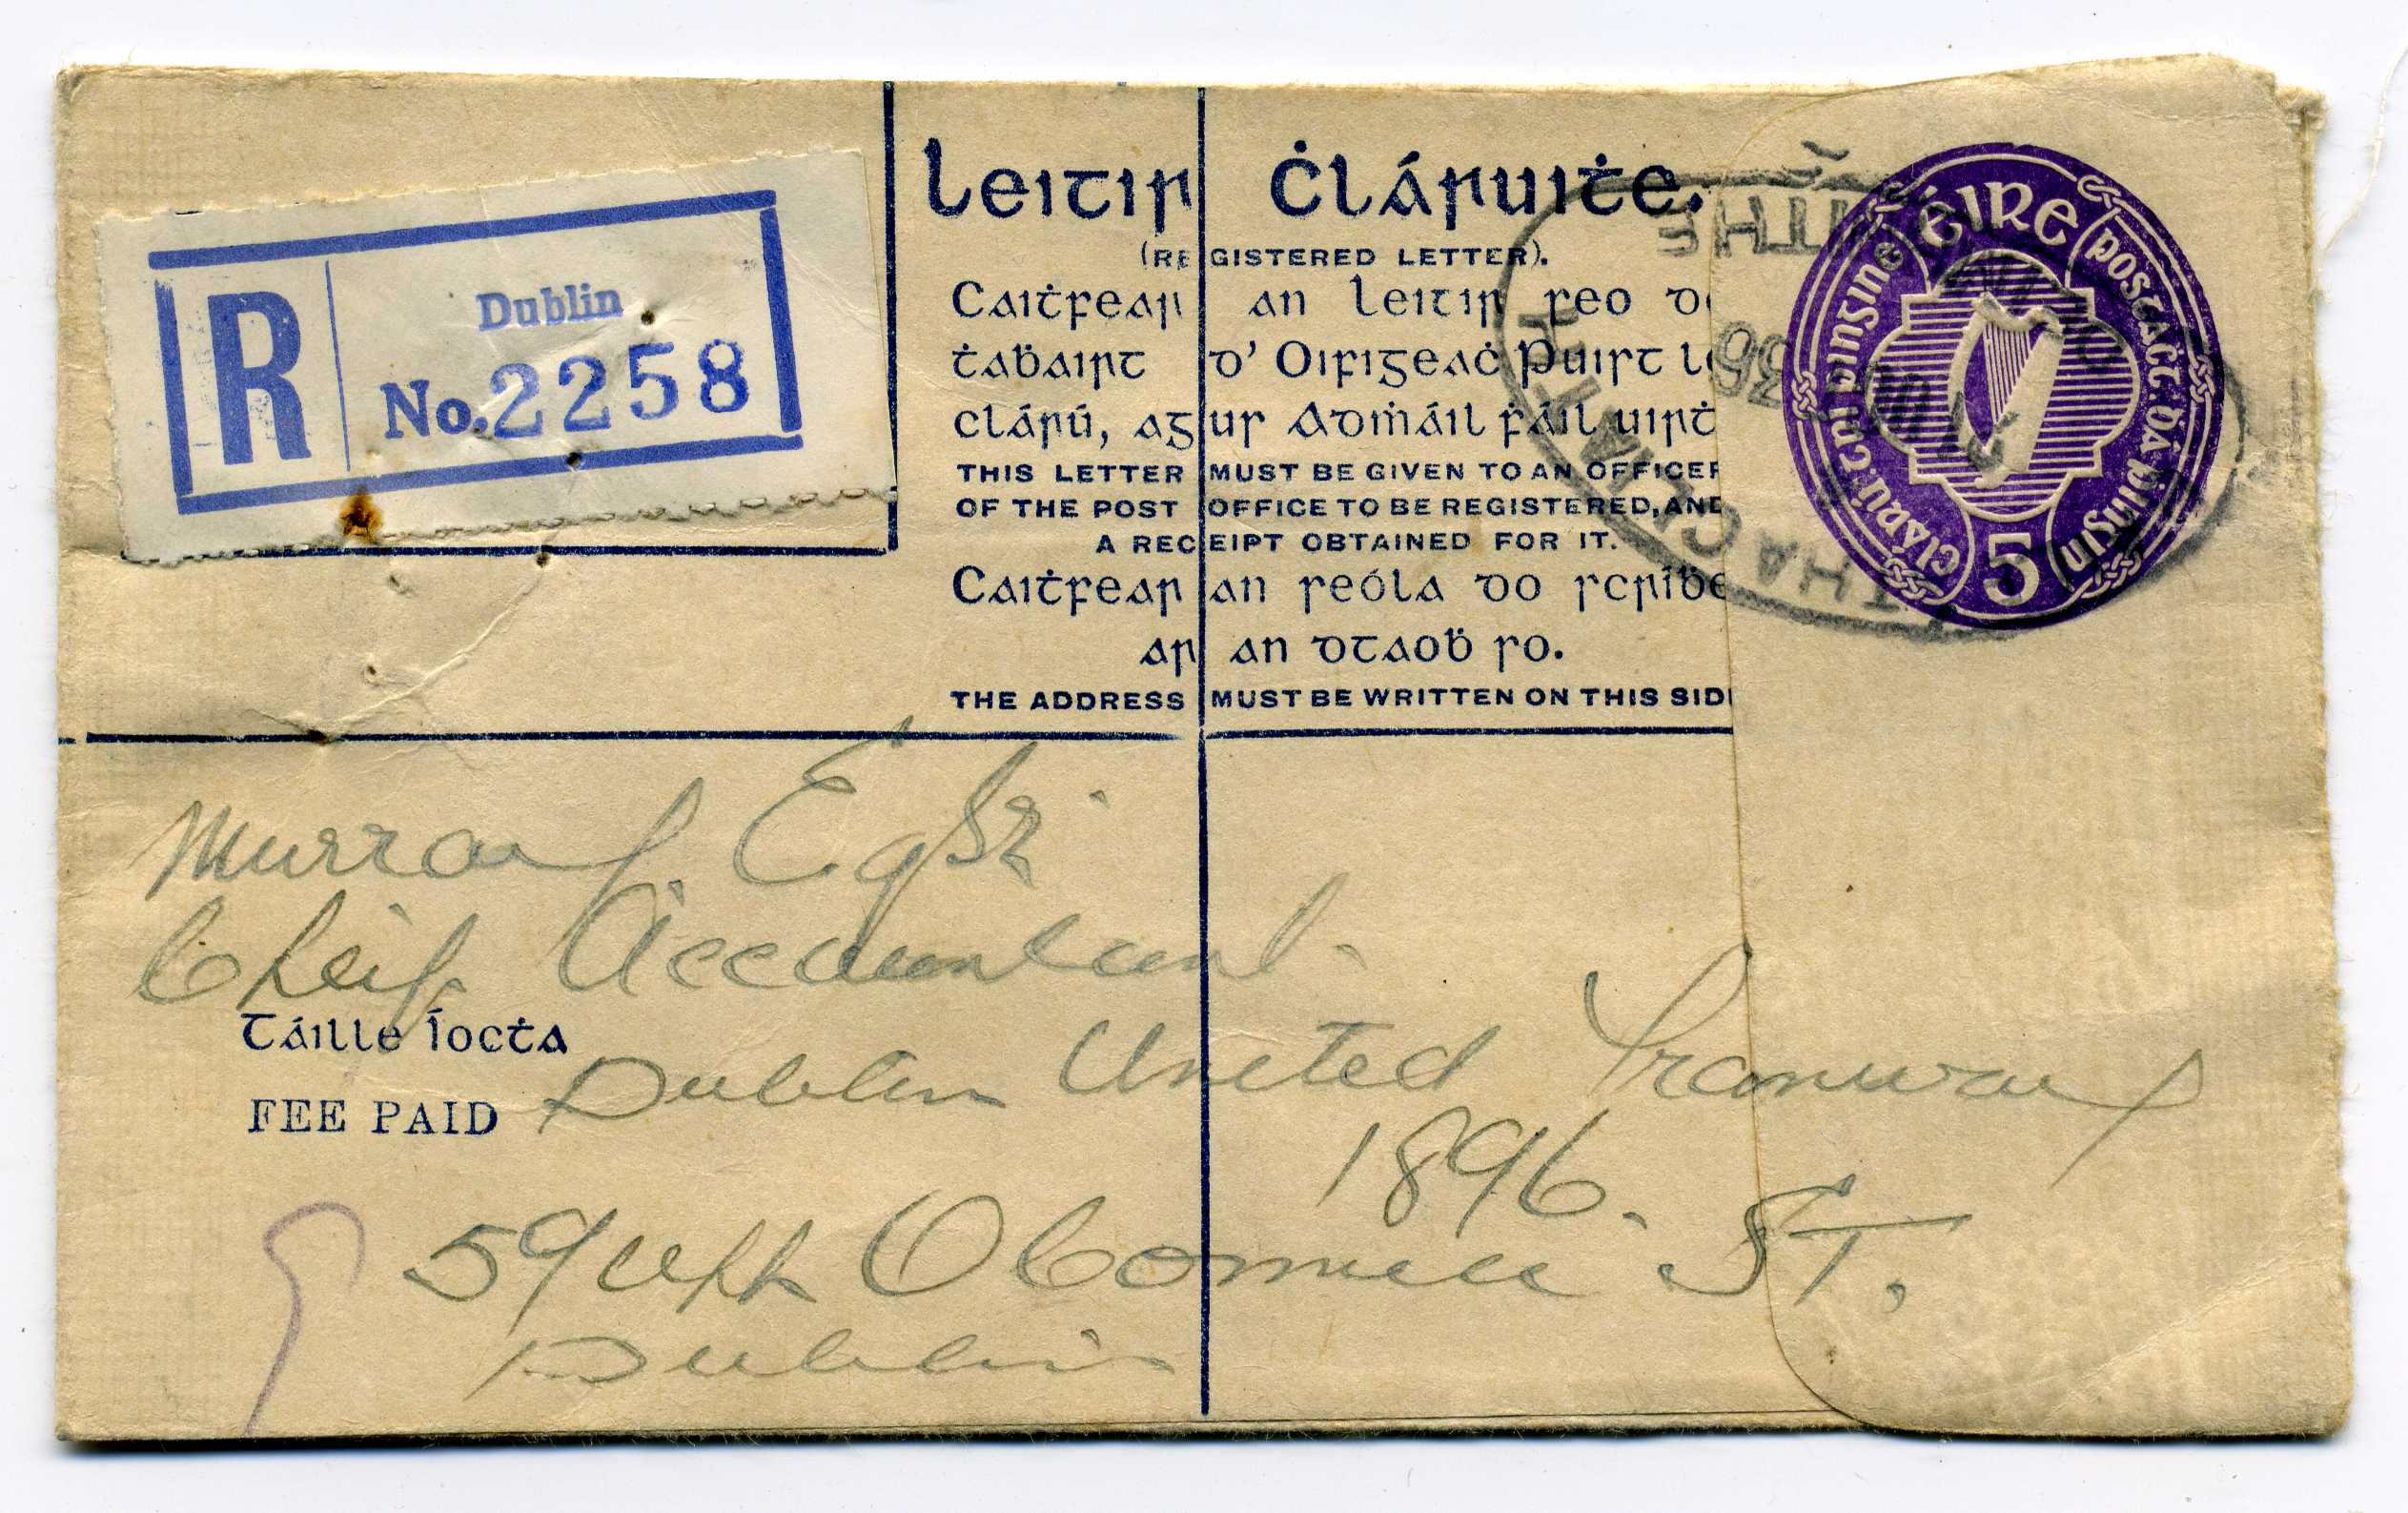 R
Dublin
No. 2258
Leitir Ċláruiṫe.
(REGISTERED LETTER).
Caiṫfear an leitir seo do
ṫaḃairt d' Oifigeaċ Puirt le
clárú, agus Admáil ḟáil uirṫ
THIS LETTER MUST BE GIVEN TO AN OFFICER
OF THE POST OFFICE TO BE REGISTERED, AND
A RECEIPT OBTAINED FOR IT.
Caiṫfear an seóla do scríḃe
ar an dtaoḃ so.
THE ADDRESS MUST BE WRITTEN ON THIS SIDE
ÉIRE
postaċt. ḋá ṗingin
5
clárú. trí pingine
Murray. Eqsr.
Cheif Accountant.
Táille Íocṫa
FEE PAID
Dublin United Tramway
1896.
59 Upr O Connell ST.
Dublin